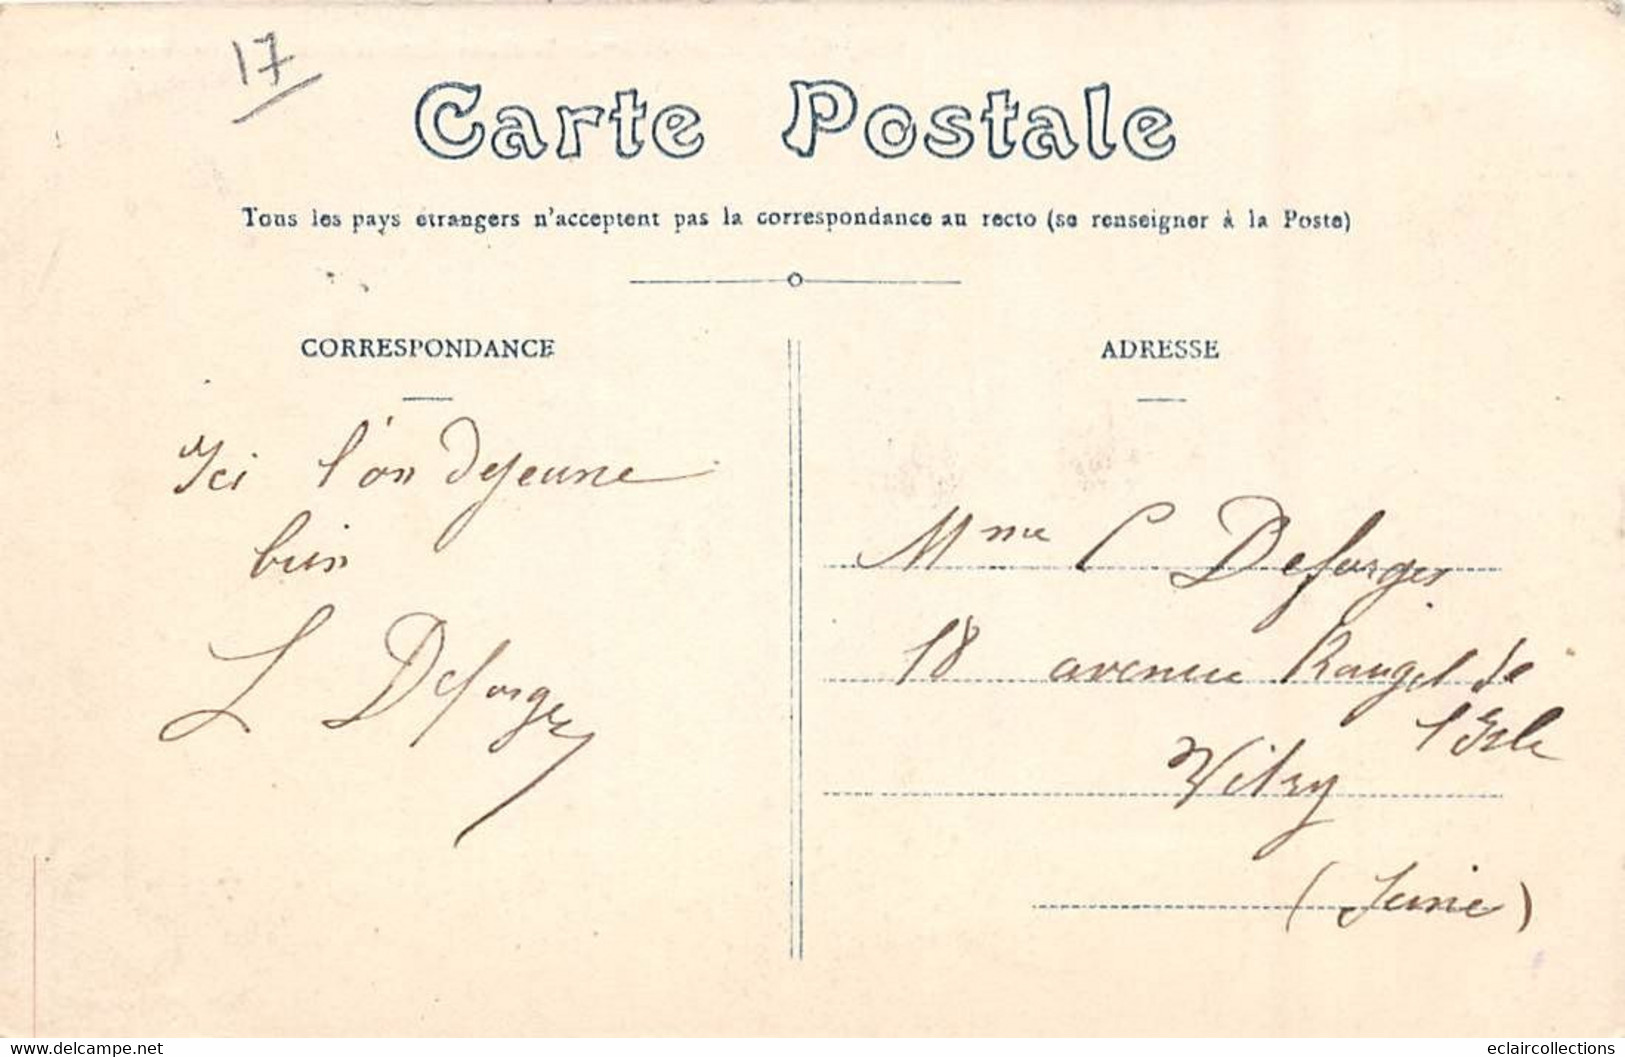 17
Carte Postale
Tous les pays étrangers n'acceptent pas la correspondance au recto (se renseigner à la Poste)
CORRESPONDANCE
Ici l'on dejeune
bien
L Deforges
ADRESSE
Mme C Deforges
18 avenue Rouget de
l'Isle
Vitry
(Seine)
delcampe.net
eclaircollections